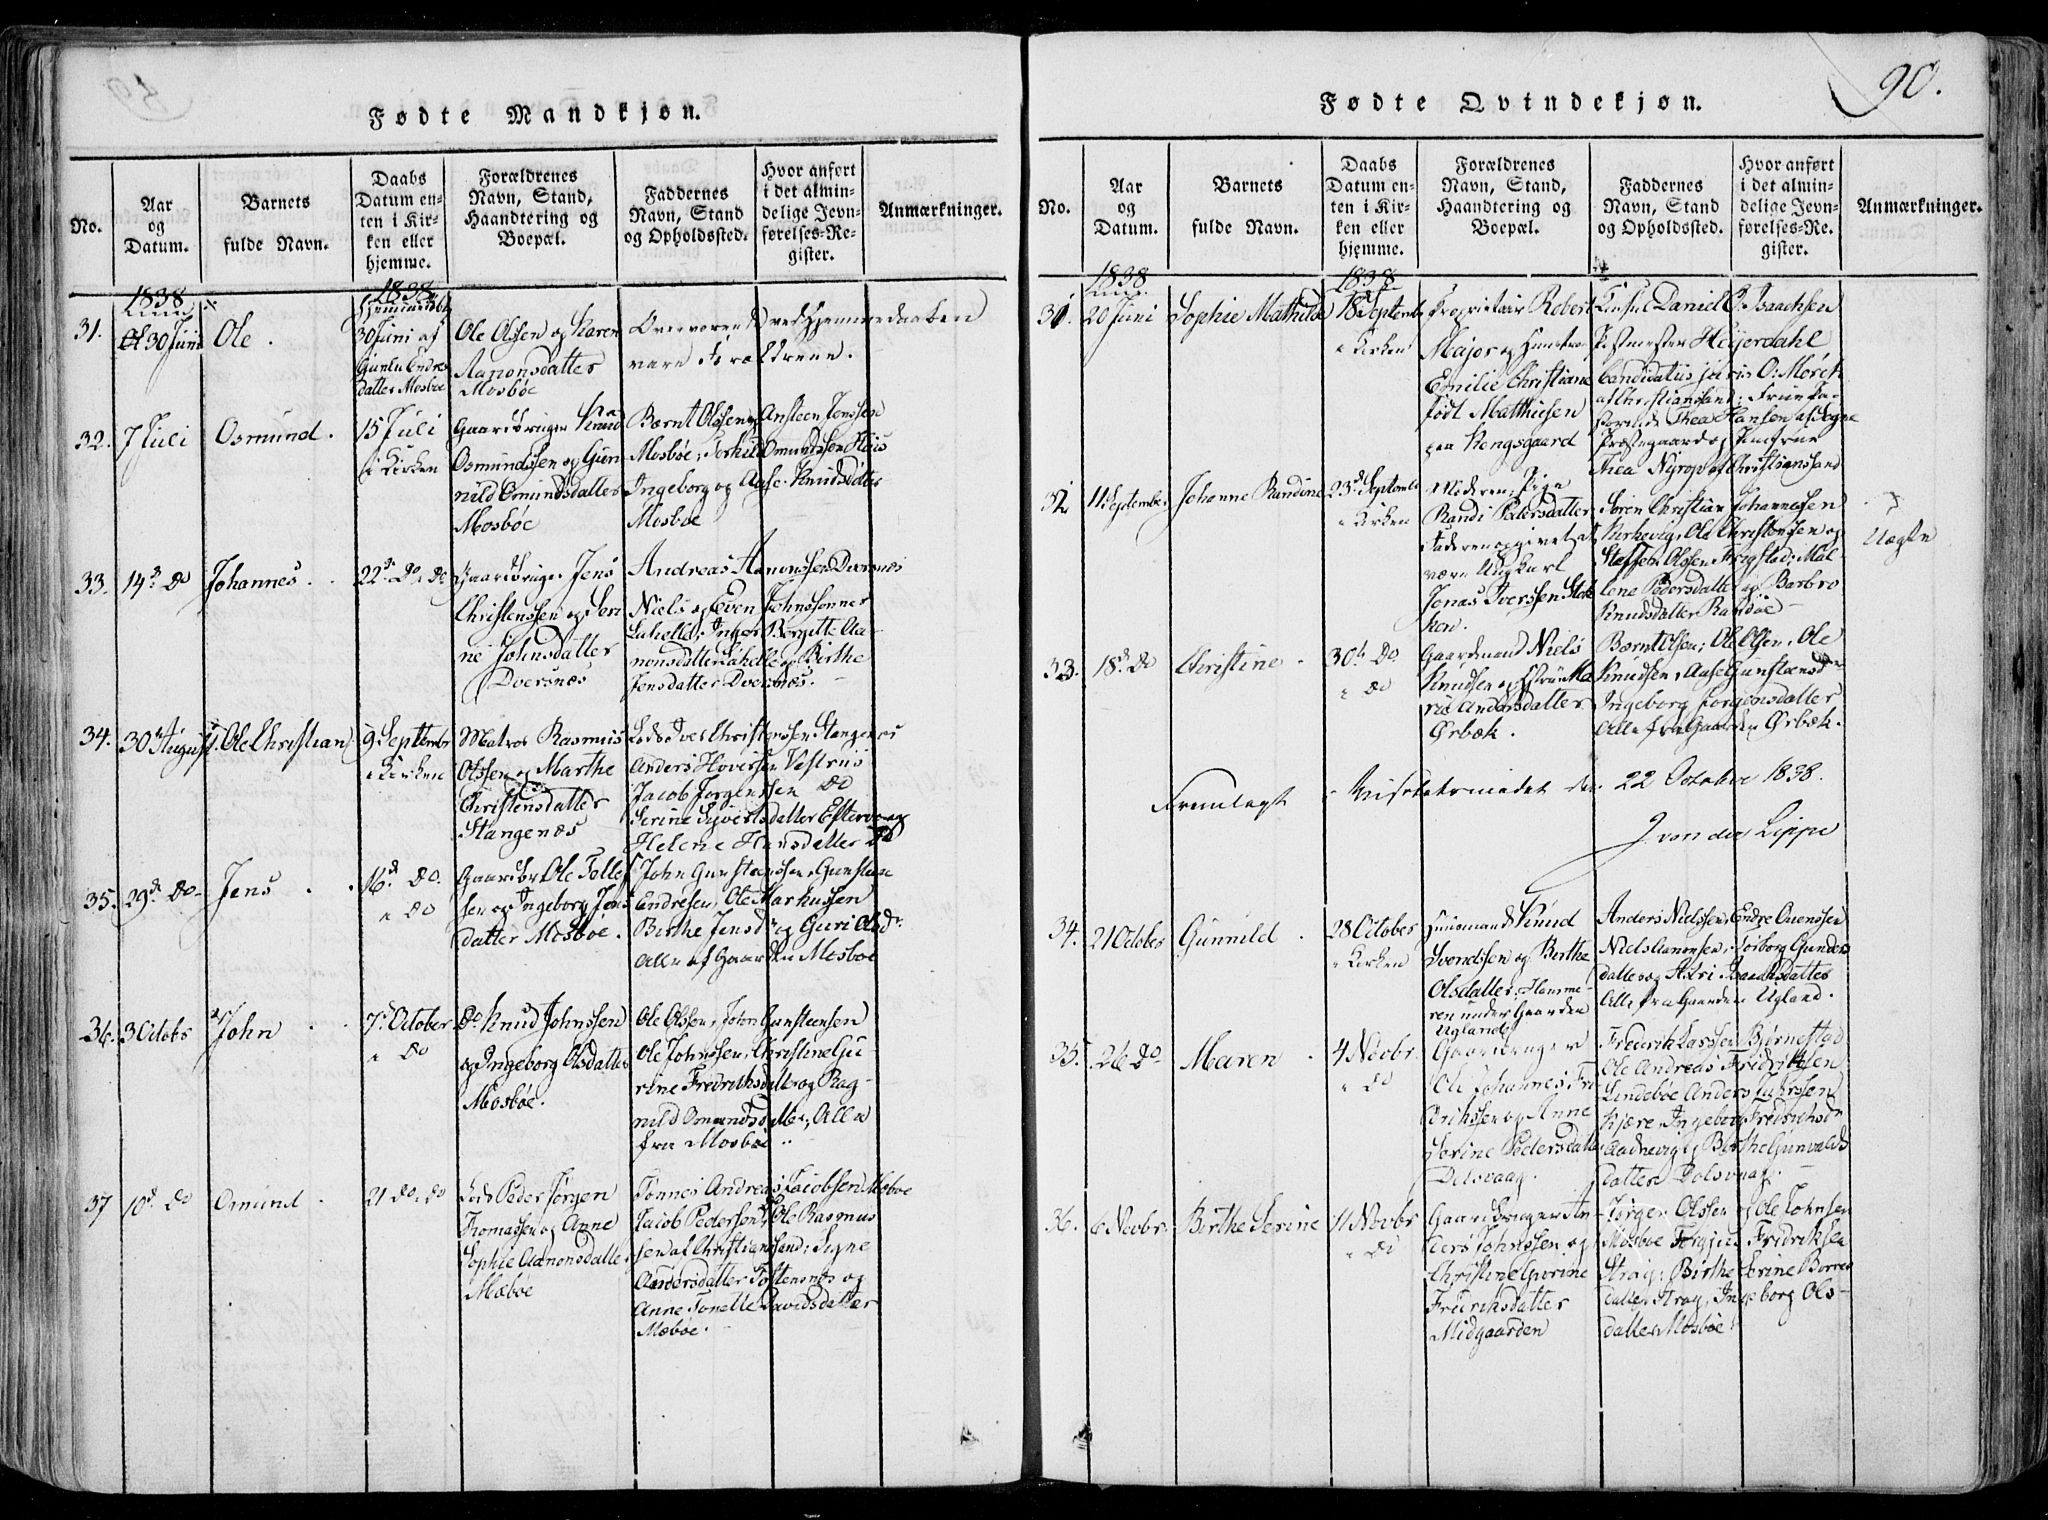 Fødte Mandkjøn.
No.
Aar
og
Datum.
Barnets
fulde Navn.
Daabs
Datum en-
ten i Kir-
ken eller
hjemme.
Forældrenes
Navn, Stand,
Haandtering og
Boepæl.
Faddernes
Navn, Stand
og Opholdssted.
Hvor anført
i det almin-
delige Jevn-
førelses-Re-
gister.
Anmærkninger.
1838
31.
30 Juni
Ole.
1838
Hjemmedøbt
30 Juni af
Endres
datter Mosbøe
Ole Olssen og Karen
Aanonsdatter
Mosbøe
Overværende ved Hjemmedaaben
vare Forældrene.
32.
7 Juli
Osmund.
15 Juli
i Kirken
Gaardbruger Knud
Osmundssen og Gun
nild Osmundsdatter
Mosbøe
Bærnt Olssen og Ansteen Jenssen
Mosbøe; Torkild Omundssen
Ingeborg og Aase Knudsdøtter
Mosbøe
33.
14de Do
Johannes.
22de Do i Do
Gaardbruger Jens
Christenssen og Seri
ne Johnsdatter
Dversnæs
Andreas Aanonssen Dversnæs
Niels og Even Johnssønner
Inger Birgitte Aa-
nonsdatter og Birthe
Jensdatter Dversnæs.
34.
30 August
Ole Christian
9 September
i Kirken
Matros Rasmus
Olssen og Marthe
Christensdatter
Stangenæs
Lods Iver Christenssen Stangenæs
Anders Hoverssen
Jacob Jørgenssen Do
Serine Sivertsdatter
Helene Hansdatter Do
35.
29de Do
Jens
16de Do.
i Do
Gaardbr. Ole Tellef
sen og Ingeborg Jens
datter Mosbøe.
John Gunsteenssen, Gunsteen
Endresen, Ole Markussen
Birthe Jensd. og Guri Olsdr.
Alle af Gaarden Mosbøe
36.
3 October
John
7de October
i Do
Do Knud Johnssen
og Ingeborg Olsdatter
Mosbøe.
Ole Olssen, John Gunsteensen
Ole Johnssen, Christine Gu-
rine Fredriksdatter og Rag-
nild Omundsdatter, Alle
fra Mosbøe
37
10de Do
Omund
21 Do i Do
Lods Peder Jørgen
Thomassen og Anne
Sophie Aanonsdatter
Mæbøe
Tønnes Andreas Jacobsen Mæbøe
Jacob Pedersen, Ole Rasmus
sen af Christianssand; Signe
Andersdatter og
Anne Tonette Davidsdatter
Mæbøe.
90.
Fødte Qvindekjøn.
No.
Aar
og
Datum.
Barnets
fulde Navn.
Daabs
Datum en-
ten i Kir-
ken eller
hjemme.
Forældrenes
Navn, Stand,
Haandtering og
Boepæl.
Faddernes
Navn, Stand
og Opholdssted.
Hvor anført
i det almin-
delige Jevn-
førelses-Re-
gister.
Anmærkninger.
1838
31.
20 Juni
Sophie Mathilde
1838
18 Septembr
i Kirken
Proprietair Robert
Major og Hustrue
Emilie Christiane
født Matthiesen
paa Kongsgaard
Consul Daniel O. Isaachsen
Postmester Heijerdahl
Candidatus juris O. Mørch
af Christianssand; Frue Pa-
storinde Thea Hansen af Søgne
Præstegaard og Jomfrue
Thea Nyrop af Christianssand
32
11 September
Johanne Randine
23de Septembr
i Kirken
Moderen: Pige
Randi Pedersdatter
Faderen opgivet at
være Ungkarl
Jonas Iverssen Stok
ken.
Søren Christian Johannessen
Kirkevig, Ole Christensen og
Steffen Olssen Frigstad; Mal
lene Pedersdatter og Barbro
Knudsdatter Randøe
Uægte
33.
18de Do
Christine
30te Do
i Do
Gaardmand Niels
Knudsen og Hustrue Ma
rie Andersdatter
Ørbæk.
Bærnt Olsen; Ole Olsen, Ole
Knudsen, Aase Gunsteensdr.
Ingeborg Jørgensdatter
Alle fra Gaarden Ørbæk.
Fremlagt i Visitatsmødet den 22 October 1838.
J von der Lippe
34.
21 October
Gunnild
28 October
i Kirken
Huusmand Knud
Svendssen og Berthe
Olsdatter, Hamme-
ren under Gaarden
Ugland
Anders Nielssen, Endre Ouenssen
Niels Aanonsen, Gunders
datter og Astri Isaachsdatter
Alle fra Gaarden Ugland.
35
26 Do
Maren
4 Novbr.
i Do
Gaardbruger
Ole Johannes Fri
drikssen og Anne
Serine Pedersdatter
Dolsvaag.
Fredrik Larssen Bjørnestad
Ole Andreas Fridriksen
Lindebøe Anders Larssen
Kjære, Ingeborg Fredriksdr
Aadnevig og Birthe Gunvalds
datter Dolsvaag.
36.
6 Novbr.
Birthe Serine
11 Novbr
i Do
Gaardbruger An-
ders Johnssen og
Christine Gurine
Fridriksdatter
Midgaarden
Jørgen Olssen og Ole Johnsen
Mosbøe Fridriksen
Straj; Birthe Serine
datter Straj, Ingeborg Ols-
datter Mosbøe